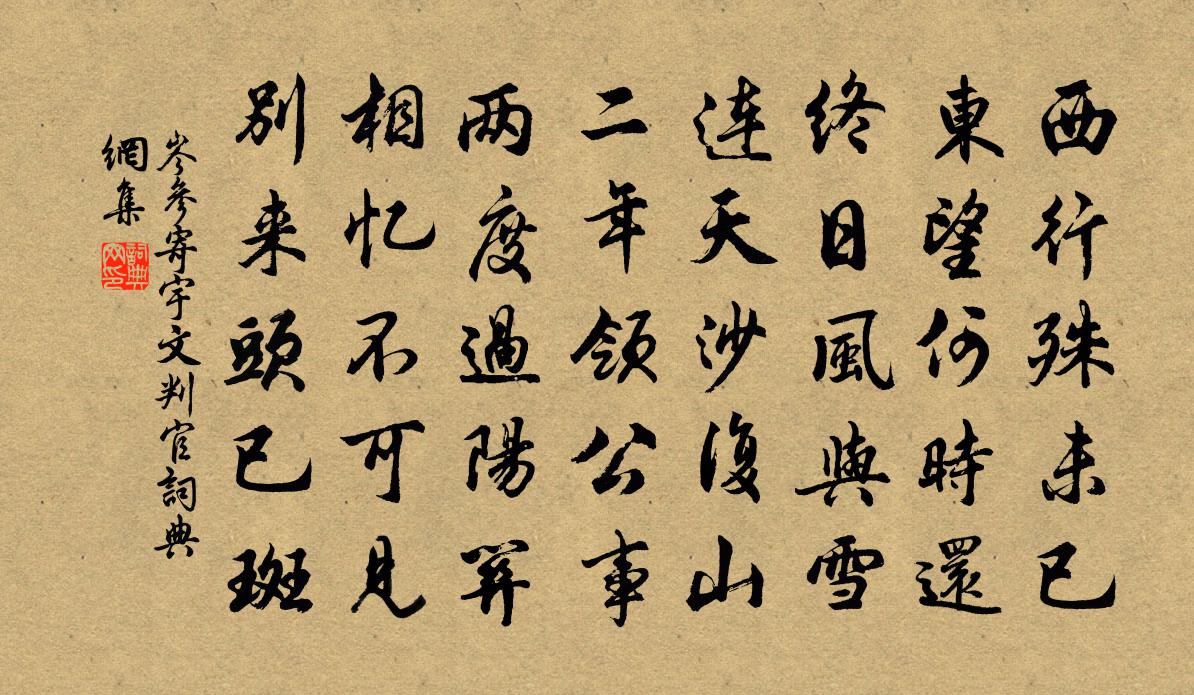 西行殊未已
東望何時還
終日風與雪
連天沙復山
二年領公事
两度過陽關
相忆不可見
別来頭已斑
岑參寄宇文判官詞典
網集
詞典
网印